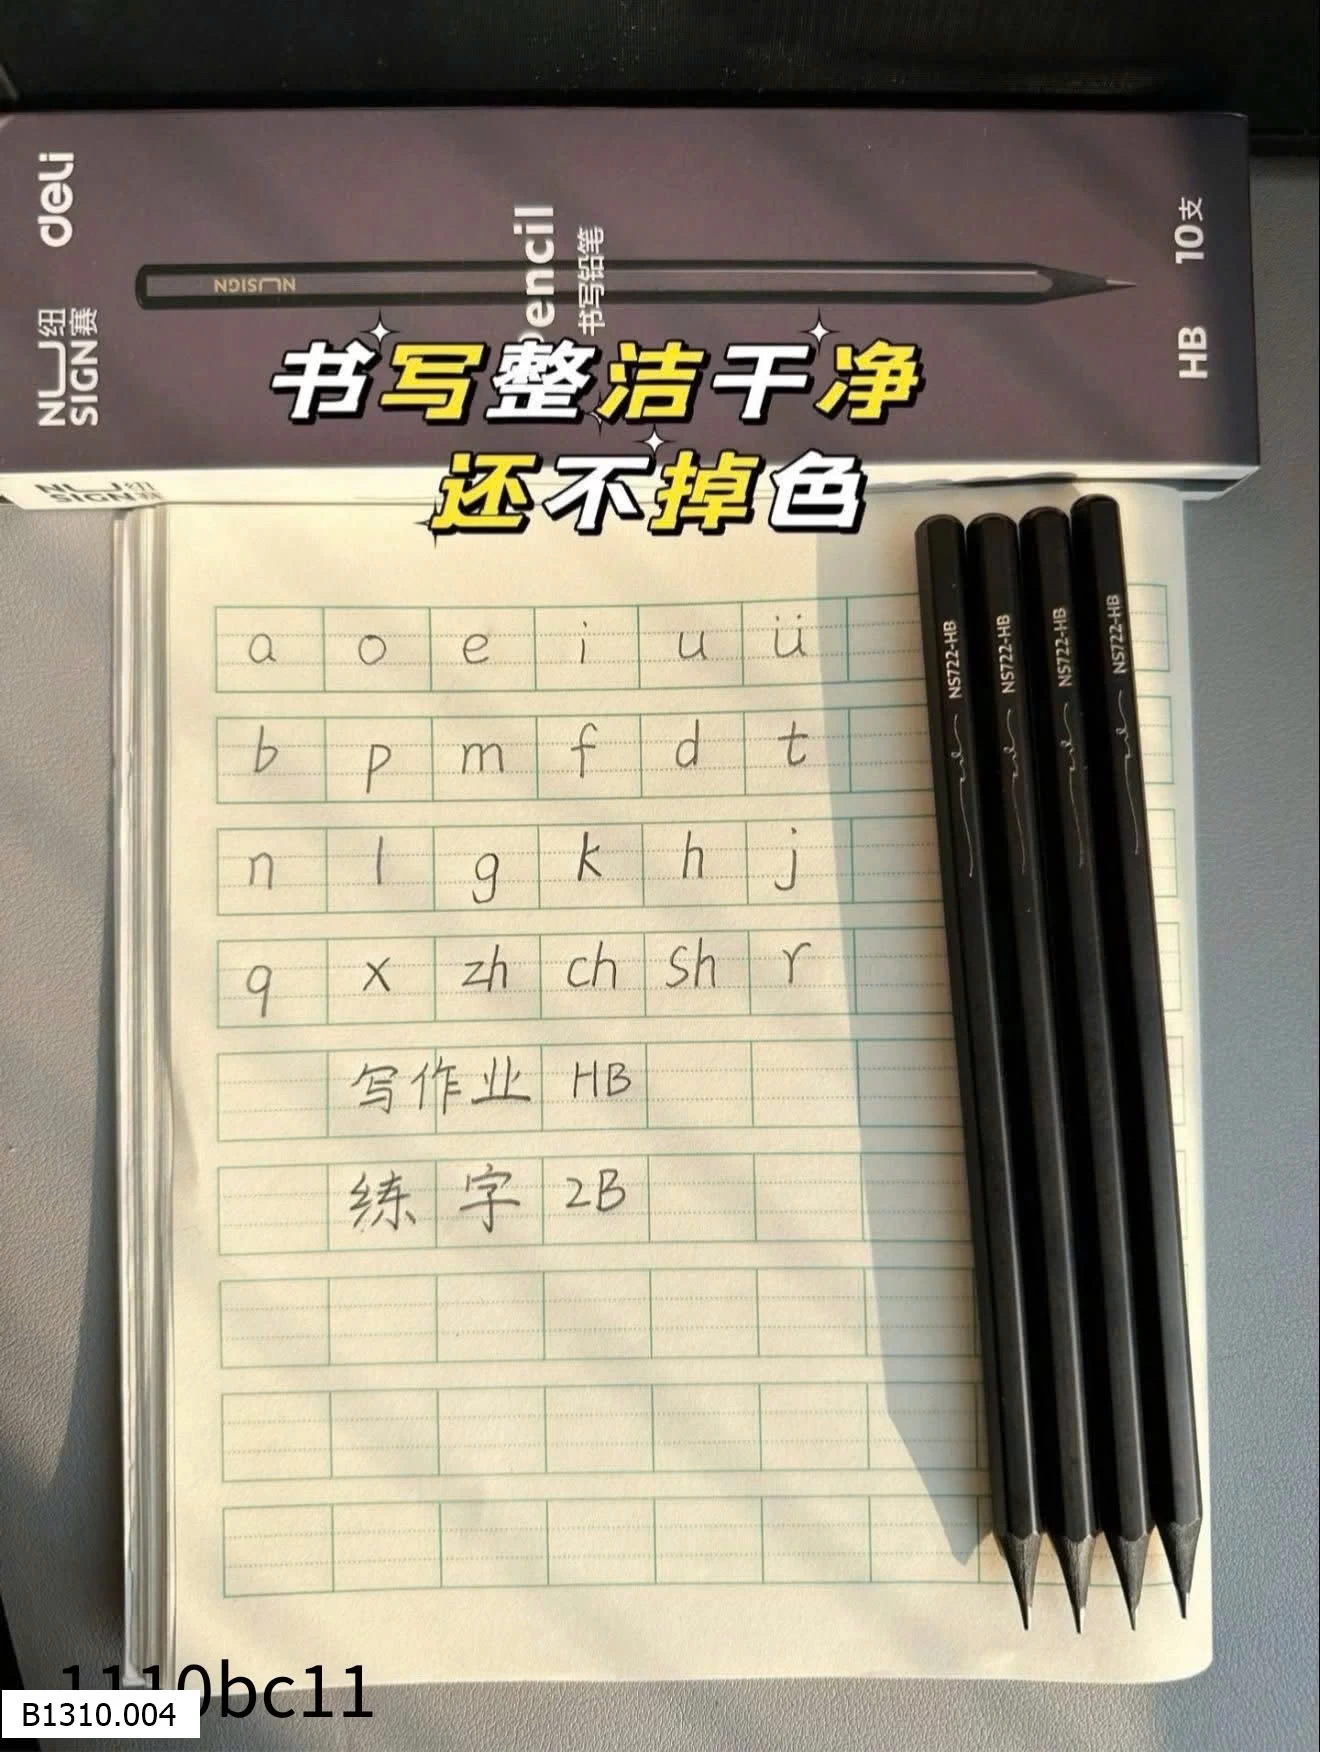 deli
NUSIGN 纽赛
NUSIGN
encil
书写铅笔
HB 10支
书写整洁干净
还不掉色
NUSIGN 纽赛
NS722-HB
NS722-HB
NS722-HB
NS722-HB
a o e i u ü
b p m f d t
n l g k h j
q x zh ch sh r
写作业 HB
练字 2B
1110bc11
B1310.004